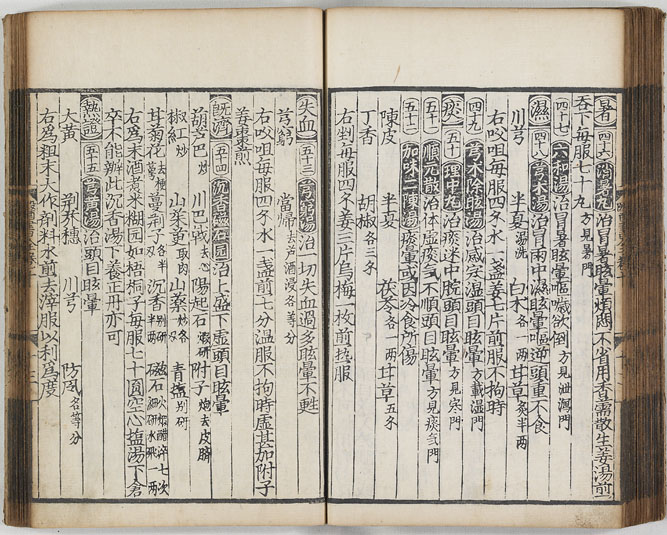 暑 四十六 消暑丸 治冒暑眩暈煩悶不省用香薷散生姜湯煎
吞下每服七十九 方見暑門
四十七 六和湯 治冒暑眩暈嘔噦欲倒 方見泄瀉門
濕 四十八 芎朮湯 治冒雨中濕眩暈嘔逆頭重不食
川芎 半夏 湯洗 白朮 各一兩 甘草 炙半兩
右㕮咀每服四戔水一盞姜七片前服不拘時
四十九 芎朮除眩湯 治感突濕眩暈 方載濕門
痰 五十 理中丸 治痰迷中脘頭目眩暈 方見寒門
五十一 順元散 治体虛痰氣不順頭目眩暈 方見痰氣門
五十二 加味二陳湯 痰暈或因冷食所傷
陳皮 半夏 茯苓 各一兩 甘草 五戔
丁香 胡椒 各三戔
右剉每服四戔姜三片烏梅一枚前热服
失血 五十三 芎窮湯 治一切失血過多眩暈不甦
芎窮 當帰 去芦酒浸各等分
右㕮咀每服四戔水一盞煎七分温服不拘時虛甚加附子
姜棗煎
既濟 五十四 沉香磁石圓 治上盛下虛頭目眩暈
葫芦巴 炒 川巴戟 去心 陽起石 煅研 附子 炮去皮臍
椒紅 炒 山茱萸 取肉 山薬 炒各一兩 青塩 别研
甘菊花 去枝蔓 蔓荊子 各半兩 沉香 别研半兩 磁石 火煅醋淬七次細研水飛一兩
右為末酒煮米糊圓如梧桐子每服七十圓空心塩湯下倉
卒不能辦此沉香湯下養正丹亦可
熱證 五十五 芎黄湯 治頭目眩暈
大黄 荆芥穂 川芎 防風 各等分
右為粗末大作剤料水煎去滓服以利為度